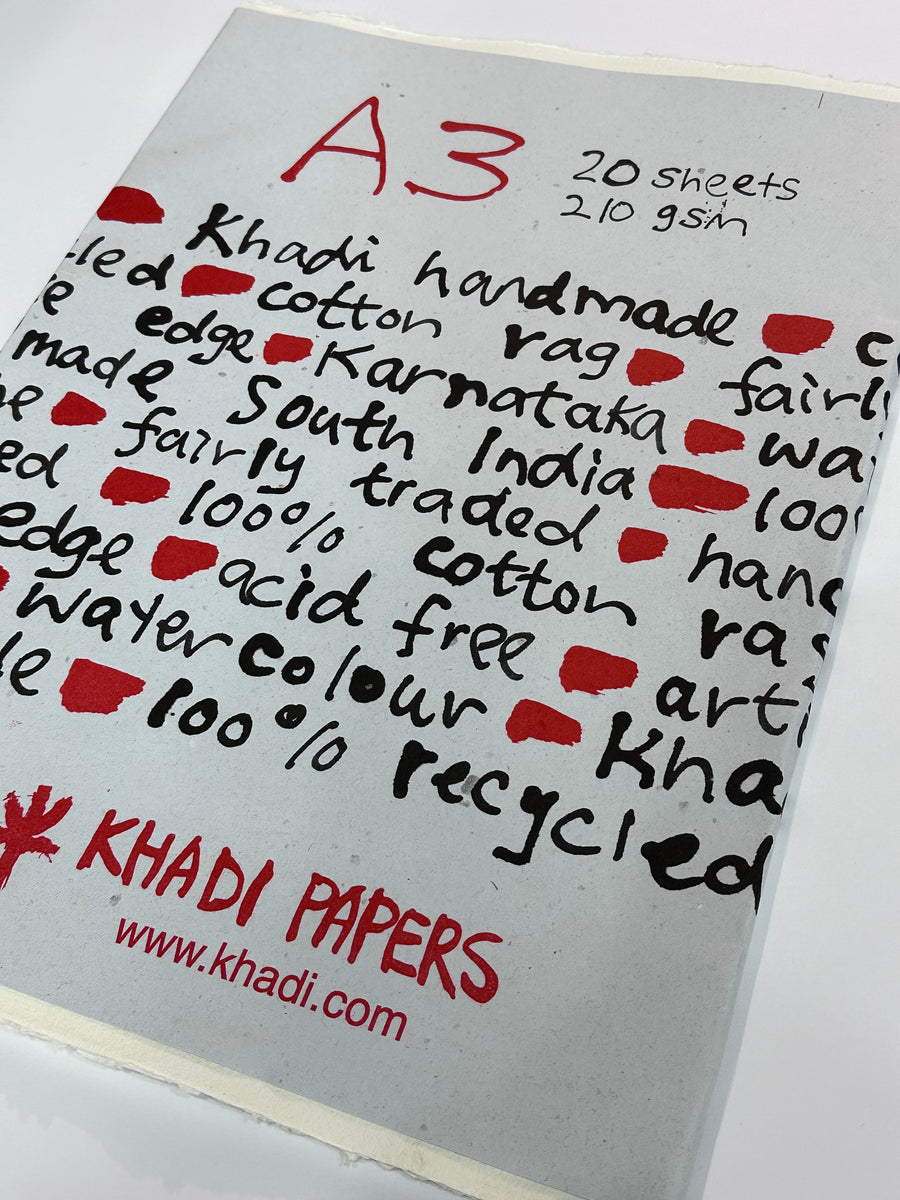 A3
20 sheets
210 gsm
Khadi handmade c
led cotton rag fairl
e edge Karnataka wa
made South India 100
e fairly traded han
ed 100% cotton ra
edge acid free arti
watercolour Kha
le 100% recycled
KHADI PAPERS
www.khadi.com